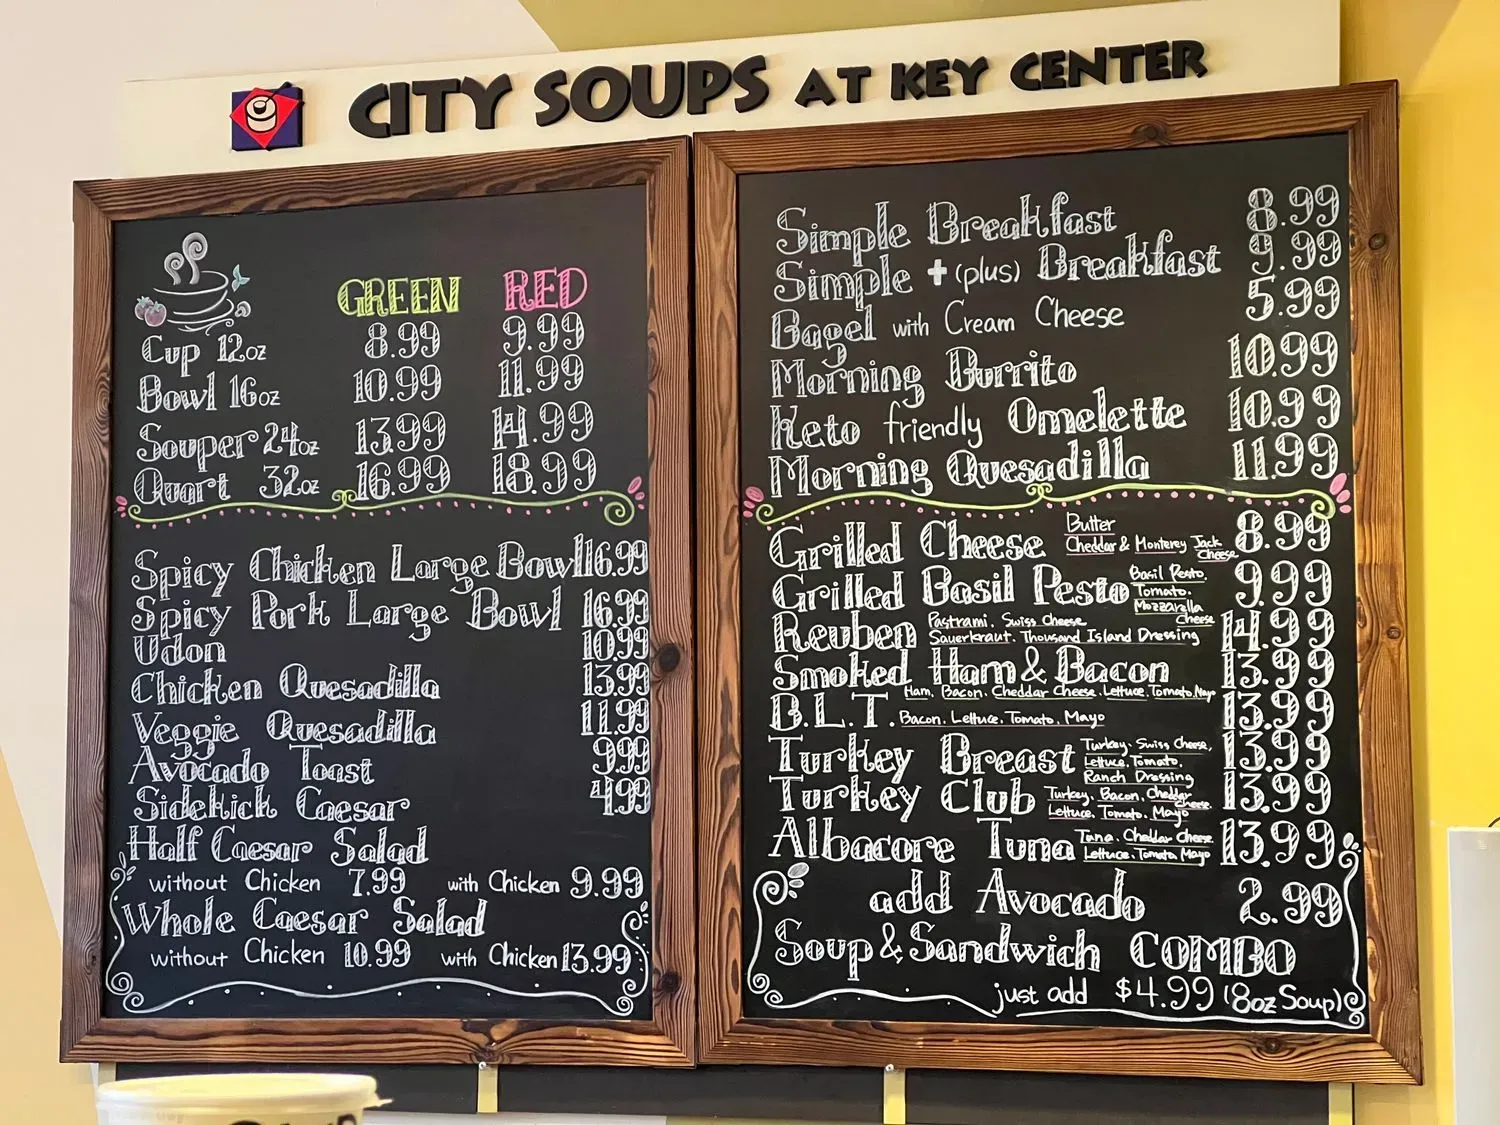 CITY SOUPS AT KEY CENTER
GREEN RED
Cup 12oz 8.99 9.99
Bowl 16oz 10.99 11.99
Souper 24oz 13.99 14.99
Quart 32oz 16.99 18.99
Spicy Chicken Large Bowl 16.99
Spicy Pork Large Bowl 16.99
Udon 10.99
Chicken Quesadilla 13.99
Veggie Quesadilla 11.99
Avocado Toast 9.99
Sidekick Caesar 4.99
Half Caesar Salad
without Chicken 7.99 with Chicken 9.99
Whole Caesar Salad
without Chicken 10.99 with Chicken 13.99
Simple Breakfast 8.99
Simple + (plus) Breakfast 9.99
Bagel with Cream Cheese 5.99
Morning Burrito 10.99
Keto friendly Omelette 10.99
Morning Quesadilla 11.99
Grilled Cheese Butter Cheddar & Monterey Jack Cheese 8.99
Grilled Basil Pesto Basil Pesto, Tomato, Mozzarella Cheese 9.99
Reuben Pastrami, Swiss Cheese Sauerkraut, Thousand Island Dressing 14.99
Smoked Ham & Bacon 13.99
Ham, Bacon, Cheddar Cheese, Lettuce, Tomato, Mayo
B.L.T. Bacon, Lettuce, Tomato, Mayo 13.99
Turkey Breast Turkey, Swiss Cheese, Lettuce, Tomato, Ranch Dressing 13.99
Turkey Club Turkey, Bacon, Cheddar Cheese, Lettuce, Tomato, Mayo 13.99
Albacore Tuna Tuna, Cheddar Cheese Lettuce, Tomato, Mayo 13.99
add Avocado 2.99
Soup & Sandwich COMBO
just add $4.99 (8oz Soup)